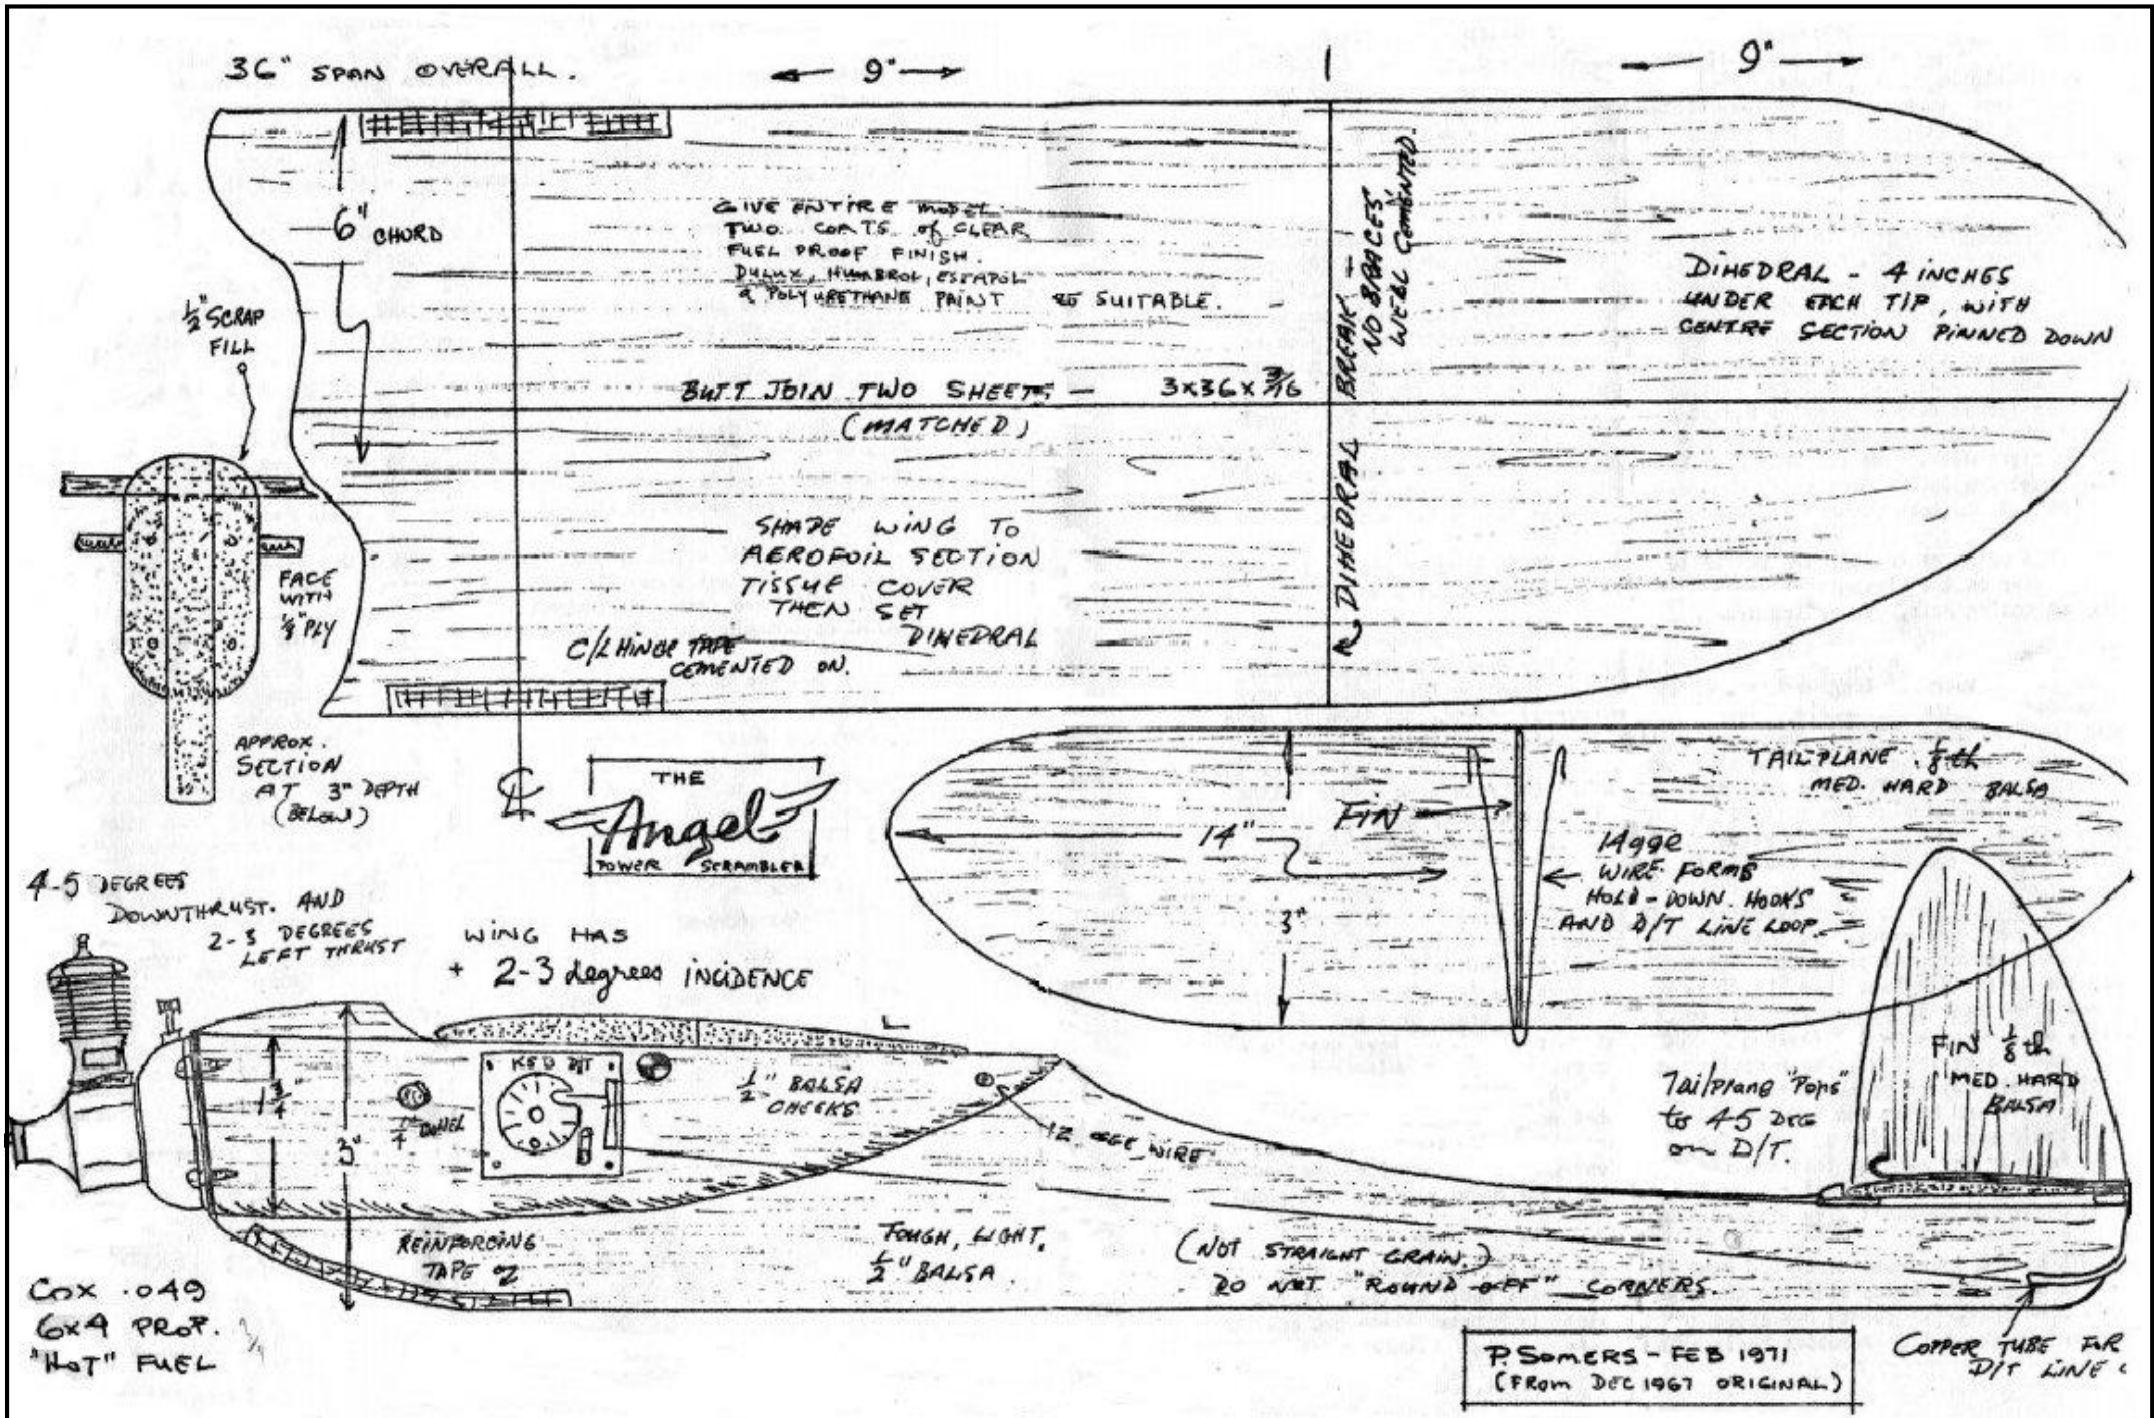 36" SPAN OVERALL.
9"
9"
6" CHORD
GIVE ENTIRE MODEL
TWO COATS of CLEAR
FUEL PROOF FINISH.
DULUX, HUMBROL, ESTAPOL
& POLYURETHANE PAINT SUITABLE.
DIHEDRAL BREAK -
NO BRACES,
WELL CEMENTED.
DIHEDRAL - 4 INCHES
UNDER EACH TIP, WITH
CENTRE SECTION PINNED DOWN
1/2" SCRAP
FILL
BUTT JOIN TWO SHEETS - 3x36x3/16
(MATCHED)
FACE
WITH
1/8" PLY
SHAPE WING TO
AEROFOIL SECTION
TISSUE COVER
THEN SET
DIHEDRAL
C/L HINGE TAPE
CEMENTED ON.
APPROX.
SECTION
AT 3" DEPTH
(BELOW)
CL
THE
Angel
POWER SCRAMBLER
TAILPLANE 1/8th
MED. HARD BALSA
FIN
14"
3"
14gge
WIRE FORMS
HOLD-DOWN HOOKS
AND D/T LINE LOOP.
4-5 DEGREES
DOWNTHRUST. AND
2-3 DEGREES
LEFT THRUST
WING HAS
+ 2-3 degrees INCIDENCE
1 3/4"
3"
1/4" DOWEL
KSB D/T
1/2" BALSA
CHEEKS
12 gge WIRE
FIN 1/8th
MED. HARD
BALSA
Tailplane "Pops"
to 45 DEG
on D/T.
REINFORCING
TAPE
TOUGH, LIGHT,
1/2" BALSA.
(NOT STRAIGHT GRAIN.)
DO NOT "ROUND-OFF" CORNERS.
COX .049
6x4 PROP.
"HOT" FUEL
P. SOMERS - FEB 1971
(FROM DEC 1967 ORIGINAL)
COPPER TUBE FOR
D/T LINE